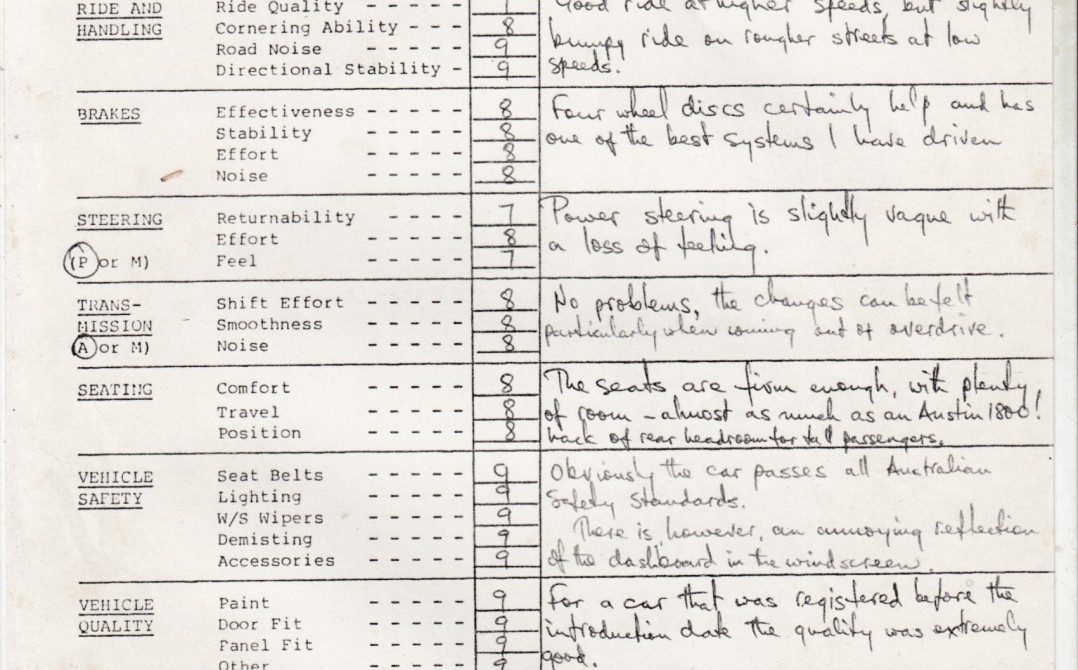 RIDE AND Ride Quality - - - - - 7 Good ride at higher speeds, but slightly
HANDLING Cornering Ability - - - - 8 bumpy ride on rougher streets at low
Road Noise - - - - - 9 speeds.
Directional Stability - - - - 9
BRAKES Effectiveness - - - - - 8 Four wheel discs certainly help and has
Stability - - - - - 8 one of the best systems I have driven
Effort - - - - - 8
Noise - - - - - 8
STEERING Returnability - - - - - 7 Power steering is slightly vague with
Effort - - - - - 8 a loss of feeling.
(P or M) Feel - - - - - 7
TRANS- Shift Effort - - - - - 8 No problems, the changes can be felt
MISSION Smoothness - - - - - 8 particularly when coming out of overdrive.
(A or M) Noise - - - - - 8
SEATING Comfort - - - - - 8 The seats are firm enough, with plenty
Travel - - - - - 8 of room - almost as much as an Austin 1800!
Position - - - - - 8 Lack of rear headroom for tall passengers.
VEHICLE Seat Belts - - - - - 9 Obviously the car passes all Australian
SAFETY Lighting - - - - - 9 Safety Standards.
W/S Wipers - - - - - 9 There is, however, an annoying reflection
Demisting - - - - - 9 of the dashboard in the windscreen.
Accessories - - - - - 9
VEHICLE Paint - - - - - 9 For a car that was registered before the
QUALITY Door Fit - - - - - 9 introduction date the quality was extremely
Panel Fit - - - - - 9 good.
Other - - - - - 9